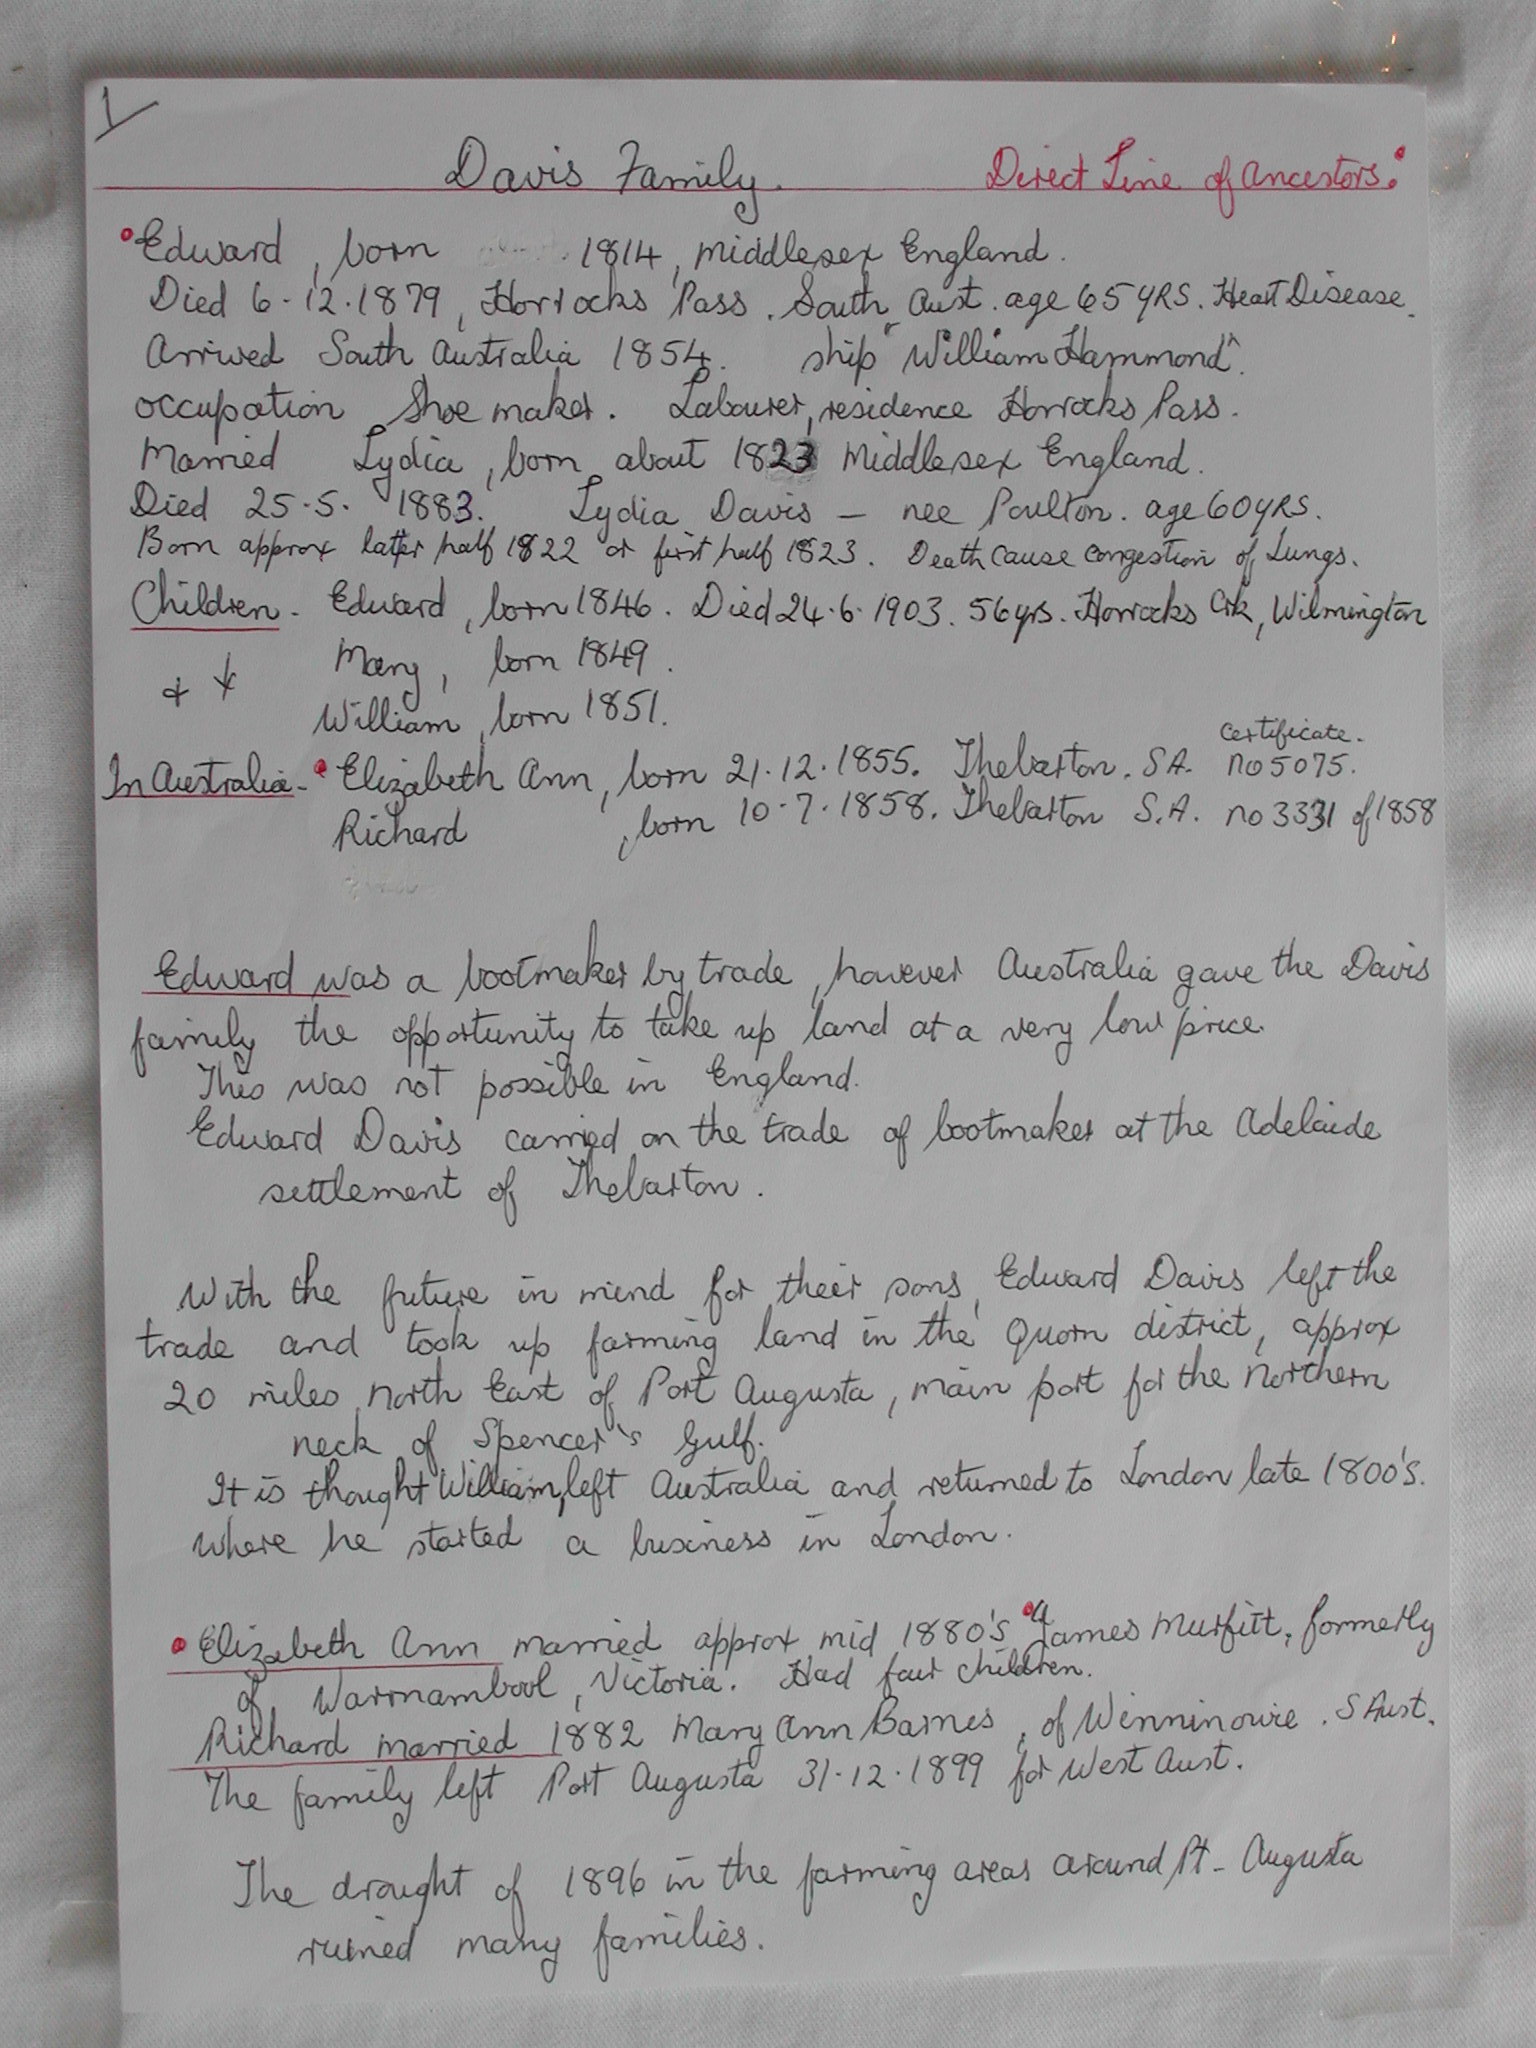 1
Davis Family. Direct Line of Ancestors.
Edward, born 1814, Middlesex England.
Died 6-12-1879, Horrocks Pass. South Aust. age 65 YRS. Heart Disease.
Arrived South Australia 1854. ship "William Hammond".
occupation Shoe maker. Labourer, residence Horrocks Pass.
Married Lydia, born about 1823 Middlesex England.
Died 25-5-1883. Lydia Davis - nee Poulton. age 60 YRS.
Born approx latter half 1822 or first half 1823. Death cause congestion of Lungs.
Children - Edward, born 1846. Died 24-6-1903. 56 yrs. Horrocks Crk, Wilmington
Mary, born 1849.
William, born 1851.
certificate.
In Australia - Elizabeth Ann, born 21.12.1855. Thebarton. S.A. no 5075.
Richard, born 10-7-1858. Thebarton S.A. no 3331 of 1858
Edward was a bootmaker by trade, however Australia gave the Davis
family the opportunity to take up land at a very low price.
This was not possible in England.
Edward Davis carried on the trade of bootmaker at the Adelaide
settlement of Thebarton.
With the future in mind for their sons, Edward Davis left the
trade and took up farming land in the Quorn district, approx
20 miles north East of Port Augusta, main port for the northern
neck of Spencer's Gulf.
It is thought William, left Australia and returned to London late 1800's.
where he started a business in London.
Elizabeth Ann married approx mid 1880's James Murfitt, formerly
of Warrnambool, Victoria. Had four children.
Richard married 1882 Mary Ann Barnes, of Winninowie. S Aust.
The family left Port Augusta 31-12-1899 for West Aust.
The drought of 1896 in the farming areas around Pt - Augusta
ruined many families.